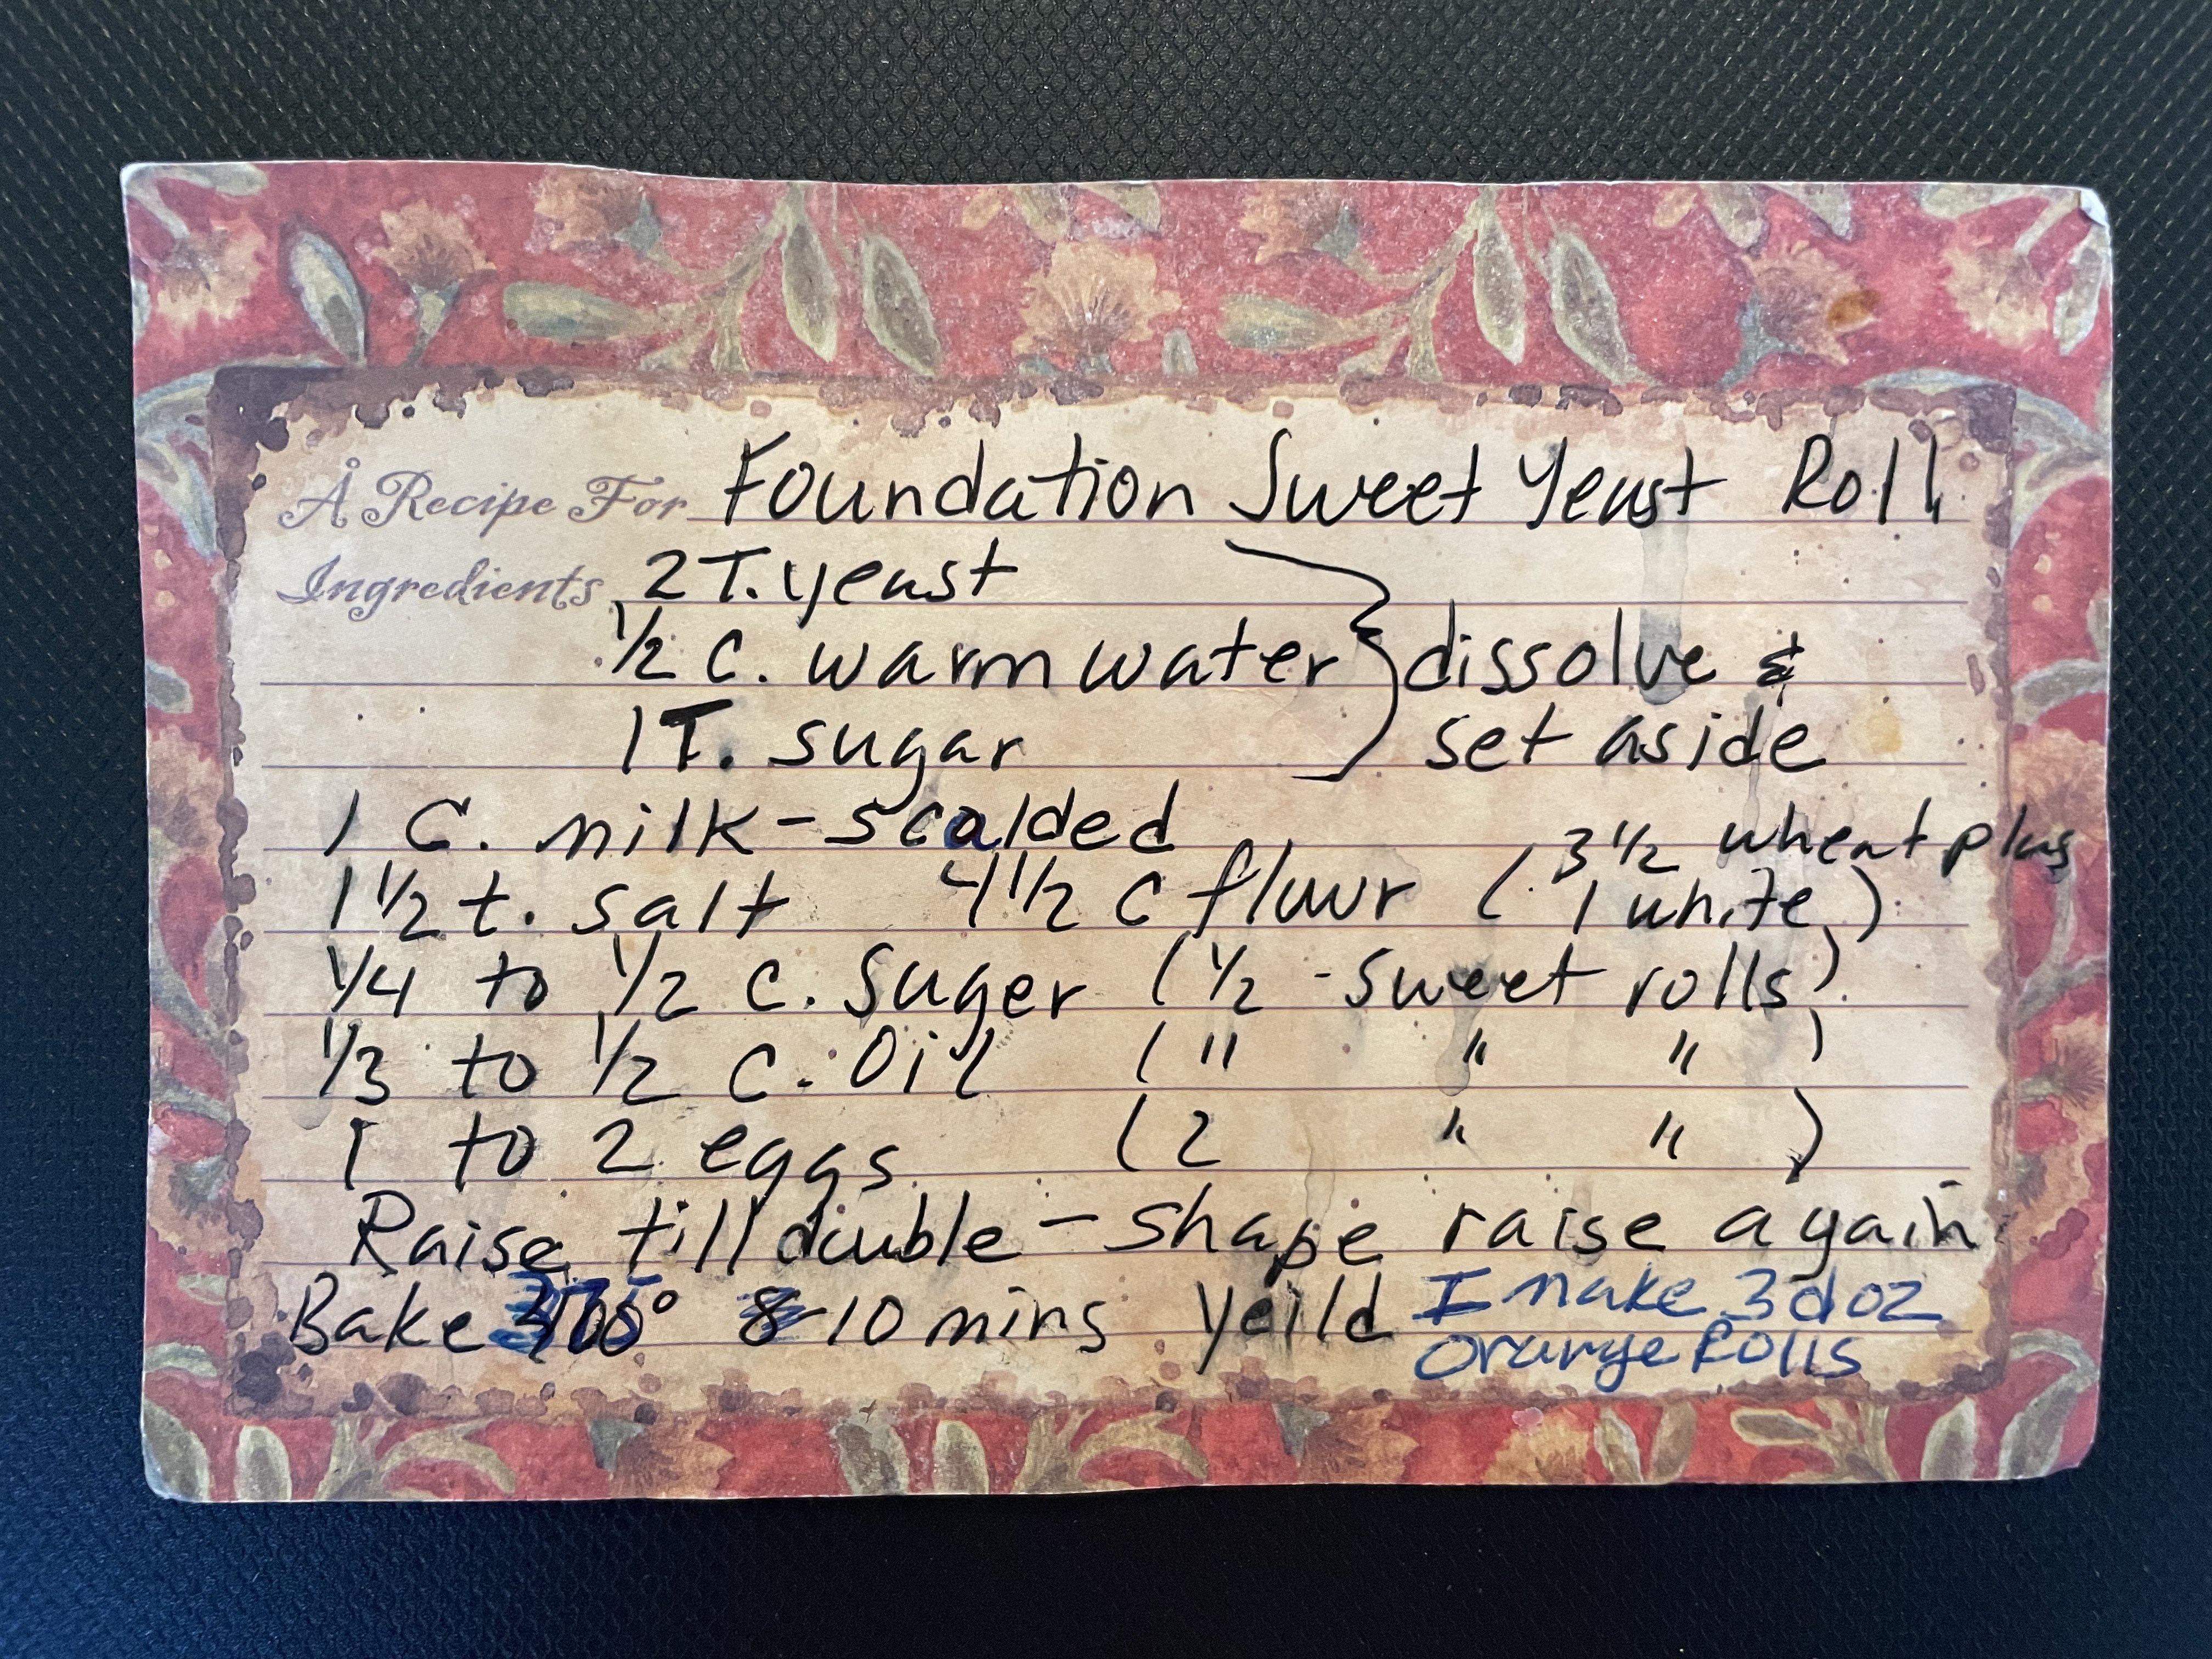 A Recipe For Foundation Sweet Yeast Roll
Ingredients 2 T. yeast
1/2 C. warm water } dissolve &
1 T. sugar set aside
1 C. milk - scalded
1 1/2 t. salt 4 1/2 C flour ( 3 1/2 wheat plus
1 white )
1/4 to 1/2 C. Suger (1/2 - Sweet rolls)
1/3 to 1/2 C. Oil ( " " " )
1 to 2 eggs (2 " " )
Raise till double - Shape raise again
Bake ° 8-10 mins Yeild I make 3 doz
Orange Rolls